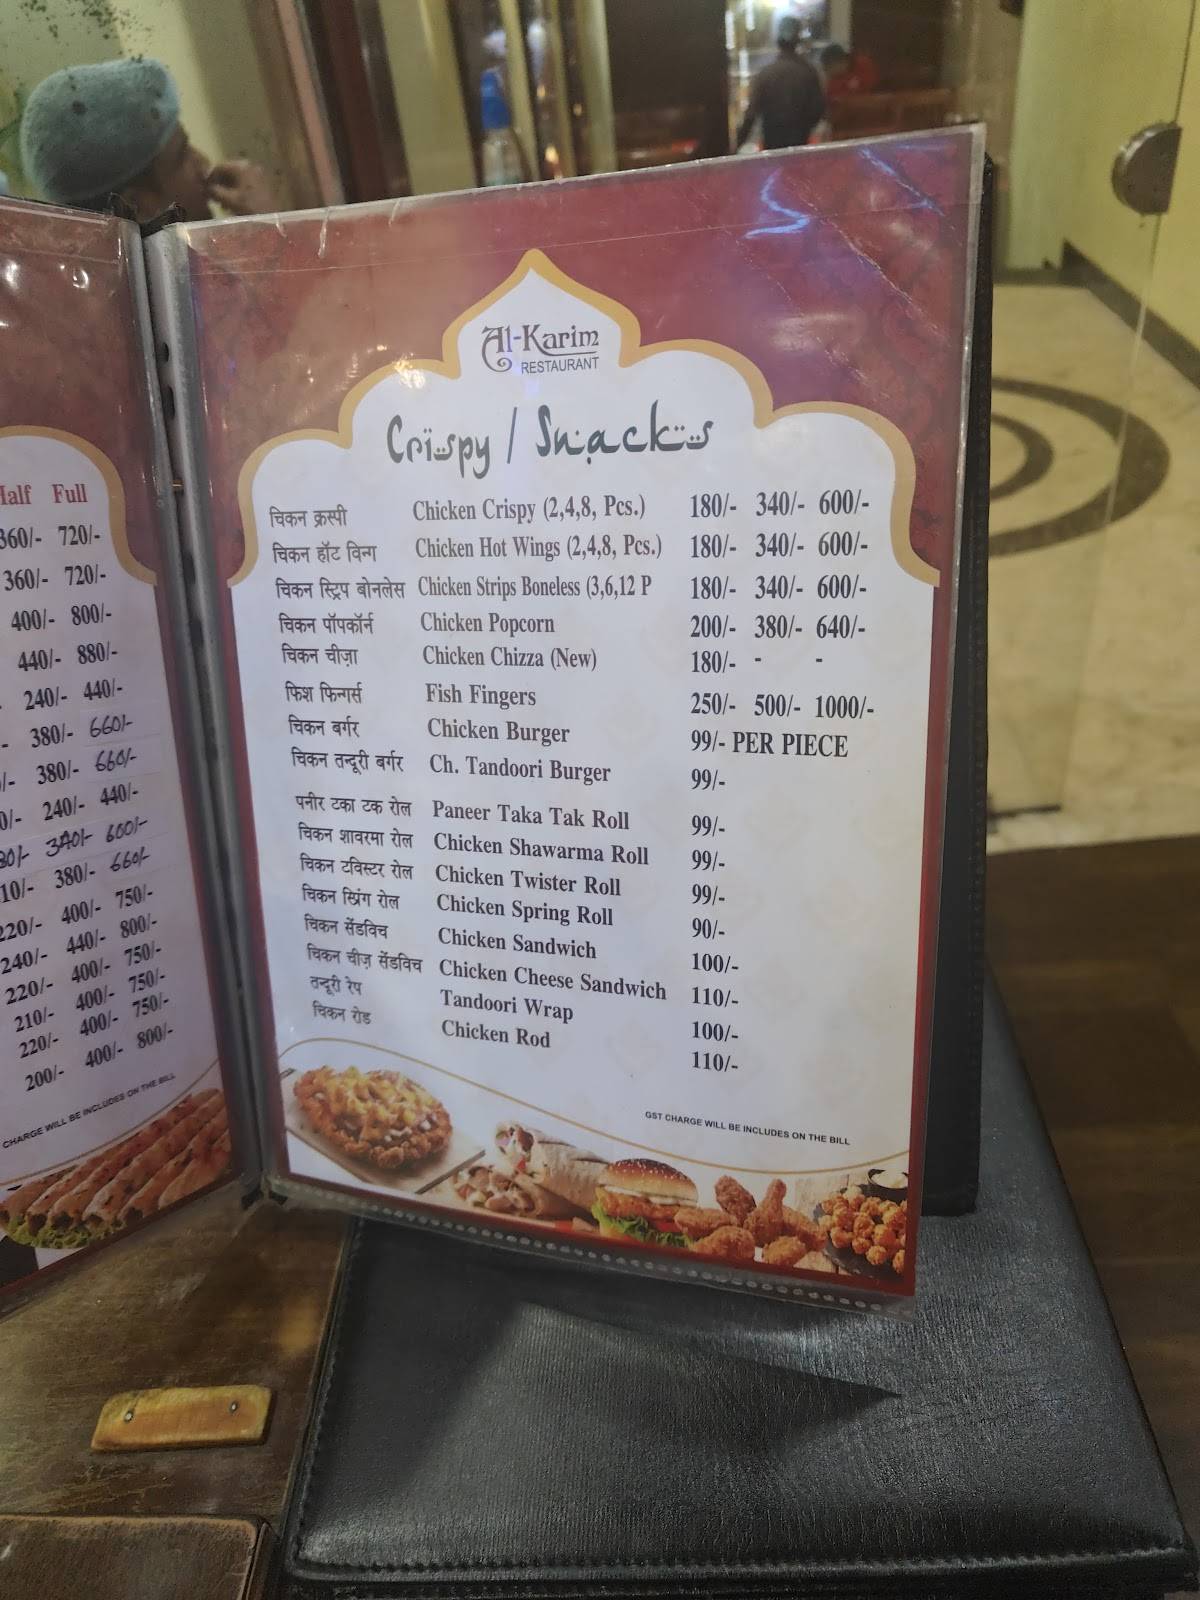 Half Full
360/- 720/-
360/- 720/-
400/- 800/-
440/- 880/-
240/- 440/-
380/- 660/-
380/- 660/-
240/- 440/-
340/- 600/-
10/- 380/- 660/-
220/- 400/- 750/-
240/- 440/- 800/-
220/- 400/- 750/-
210/- 400/- 750/-
220/- 400/- 750/-
200/- 400/- 800/-
CHARGE WILL BE INCLUDES ON THE BILL
Al-Karim
RESTAURANT
Crispy / Snacks
चिकन क्रस्पी Chicken Crispy (2,4,8, Pcs.) 180/- 340/- 600/-
चिकन हॉट विन्ग Chicken Hot Wings (2,4,8, Pcs.) 180/- 340/- 600/-
चिकन स्ट्रिप बोनलेस Chicken Strips Boneless (3,6,12 P 180/- 340/- 600/-
चिकन पॉपकॉर्न Chicken Popcorn 200/- 380/- 640/-
चिकन चीज़ा Chicken Chizza (New) 180/- - -
फिश फिन्गर्स Fish Fingers 250/- 500/- 1000/-
चिकन बर्गर Chicken Burger 99/- PER PIECE
चिकन तन्दूरी बर्गर Ch. Tandoori Burger 99/-
पनीर टका टक रोल Paneer Taka Tak Roll 99/-
चिकन शावरमा रोल Chicken Shawarma Roll 99/-
चिकन टविस्टर रोल Chicken Twister Roll 99/-
चिकन स्प्रिंग रोल Chicken Spring Roll 90/-
चिकन सेंडविच Chicken Sandwich 100/-
चिकन चीज़ सेंडविच Chicken Cheese Sandwich 110/-
तन्दूरी रेप Tandoori Wrap 100/-
चिकन रोड Chicken Rod 110/-
GST CHARGE WILL BE INCLUDES ON THE BILL